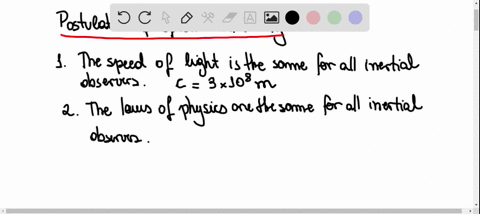 Postulat
1. The speed of light is the same for all inertial
observers. c = 3 × 10⁸ m
2. The laws of physics are the same for all inertial
observers.